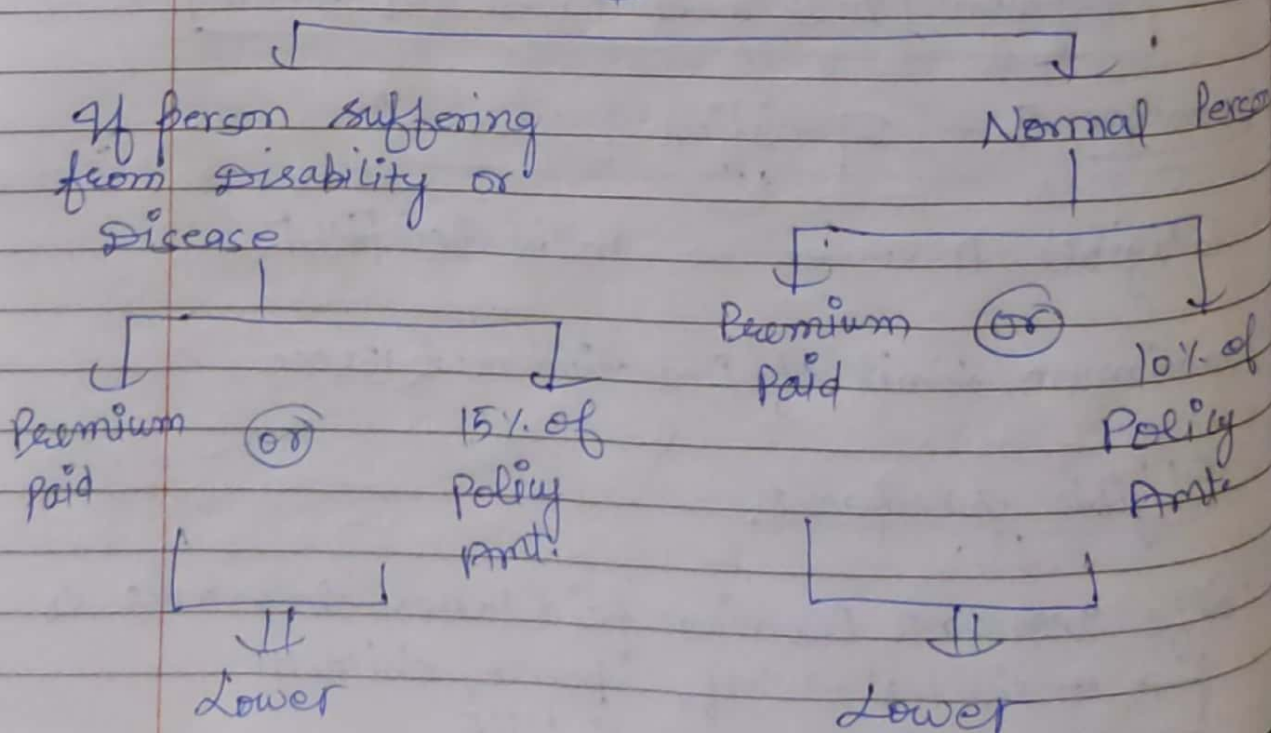 If person suffering
from Disability or
Disease
Premium
Paid
or
15% of
Policy
Amt.
Lower
Normal
Premium
Paid
or
10% of
Policy
Amt.
Lower